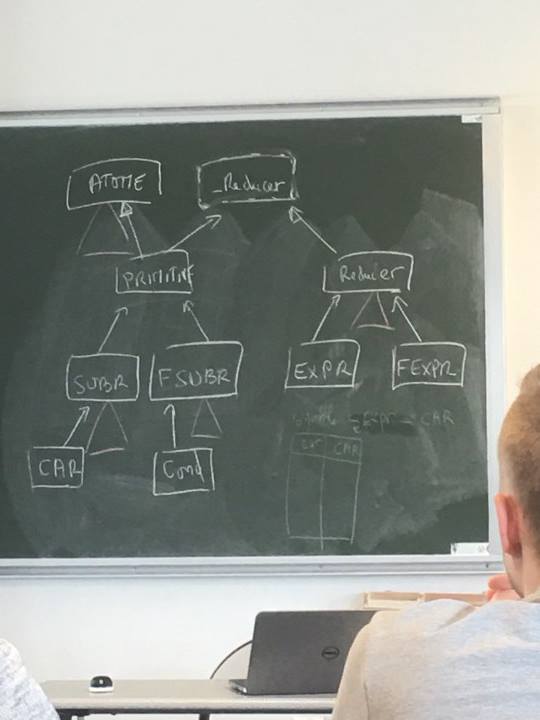 ATOME
_Reducer
PRIMITIVE
Reducer
SUBR
FSUBR
EXPR
FEXPR
CAR
CAR
CAR
Cond
DELL